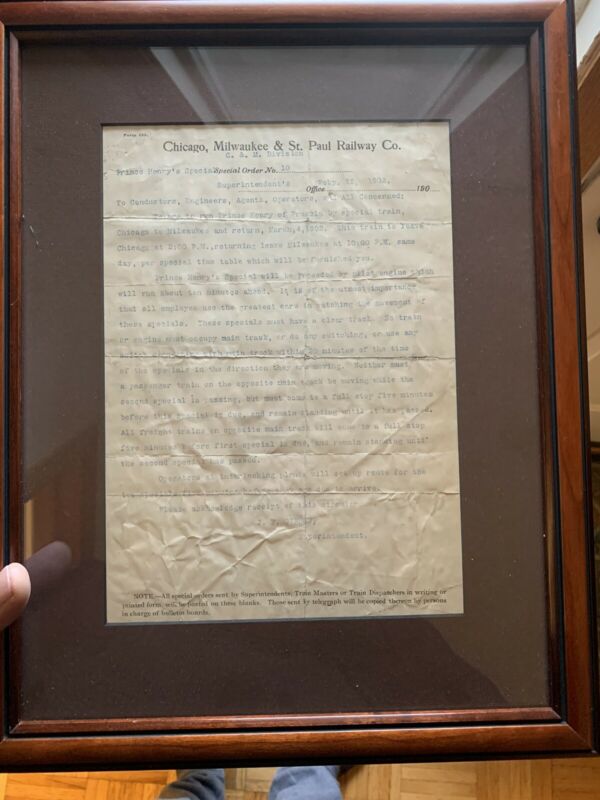 Form 121.
Chicago, Milwaukee & St. Paul Railway Co.
C. & M. Division
Prince Henry's Special Special Order No. 10
Superintendent's Office, Feby. 12, 1902, 190
To Conductors, Engineers, Agents, Operators, and All Concerned:
to run Prince Henry of Prussia by special train,
Chicago to Milwaukee and return, March, 4, 1902. This train is leave
Chicago at 2:00 P.M., returning leave Milwaukee at 10:00 P.M. same
day, per special time table which will be furnished you.
Prince Henry's Special will be preceded by pilot engine which
will run about ten minutes ahead. It is of the utmost importance
that all employes use the greatest care in watching the movement of
these specials. These specials must have a clear track. No train
or engine must occupy main track, or do any switching, or use any
main track within minutes of the time
of the specials in the direction they are moving. Neither must
a passenger train on the opposite main track be moving while the
second special is passing, but must come to a full stop five minutes
before this special is due, and remain standing until it has passed.
All freight trains on opposite main track will come to a full stop
five minutes before first special is due, and remain standing until
the second special has passed.
Operators at interlocking plants will set up route for the
specials five minutes before they are due to arrive.
Please acknowledge receipt of this circular.
Superintendent.
NOTE.—All special orders sent by Superintendents, Train Masters or Train Dispatchers in writing or
printed form, will be posted on these blanks. Those sent by telegraph will be copied thereon by persons
in charge of bulletin boards.